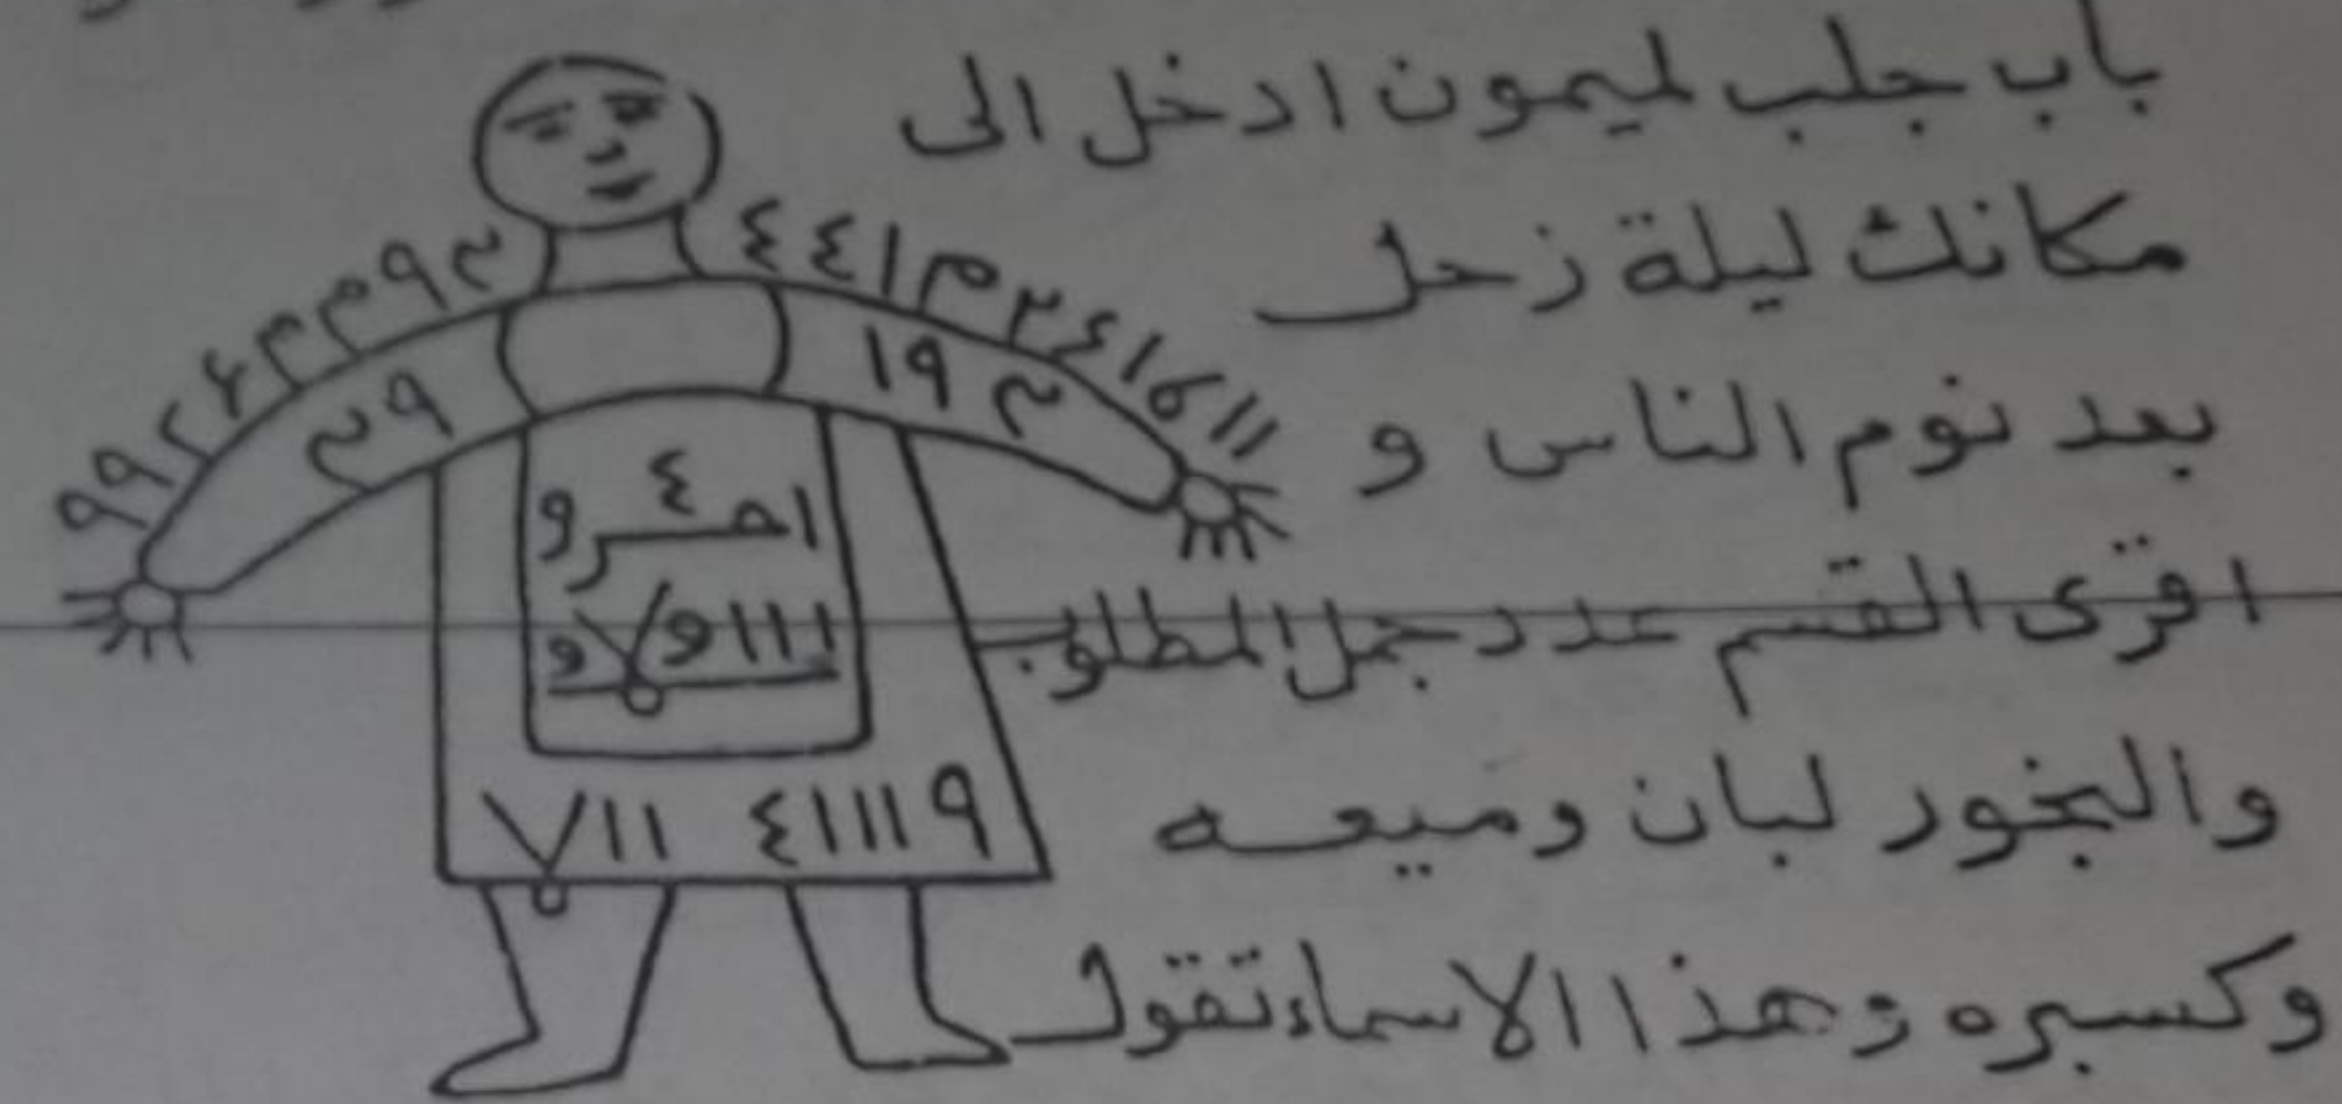 باب جلب لميمون ادخل الى
مكانك ليلة زحل
بعد نوم الناس و
اقرى القسم عدد جمل المطلوب
والبخور لبان وميعه
وكسبره وهذا الاسماء تقول
١٩
٤
احرو
١١١و٧و
٧١١ ٤١١١٩